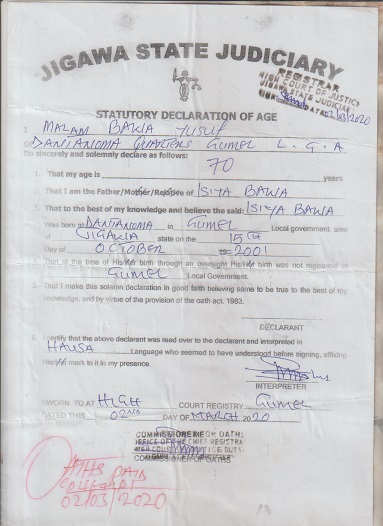 JIGAWA STATE JUDICIARY
REGISTRAR
HIGH COURT OF JUSTICE
JIGAWA STATE JUDICIARY
02/03/2020
STATUTORY DECLARATION OF AGE
I MALAM BAWA YUSUF
Of DANTANOMA QUARTERS GUMEL L.G.A
Do sincerely and solemnly declare as follows:
1. That my age is 70 years
2. That I am the Father/Mother/Relative of ISIYA BAWA
3. That to the best of my knowledge and believe the said: ISIYA BAWA
Was born at DANTANOMA in GUMEL Local government area
of JIGAWA state on the 15TH
Day of OCTOBER 2001
That at the time of His/Her birth through an oversight His/Her birth was not registered at
GUMEL Local Government.
5. That I make this solemn declaration in good faith believing same to be true to the best of my
knowledge, and by virtue of the provision of the oath act. 1963.
DECLARANT
I certify that the above declarant was read over to the declarant and interpreted in
HAUSA Language who seemed to have understood before signing, affixing
His/Her mark to it in my presence.
INTERPRETER
SWORN TO AT HIGH COURT REGISTRY GUMEL
DATED THIS 02ND DAY OF MARCH 2020
COMMISSIONER FOR OATHS
COMMISSIONER OF OATHS
OATHS PAID
02/03/2020